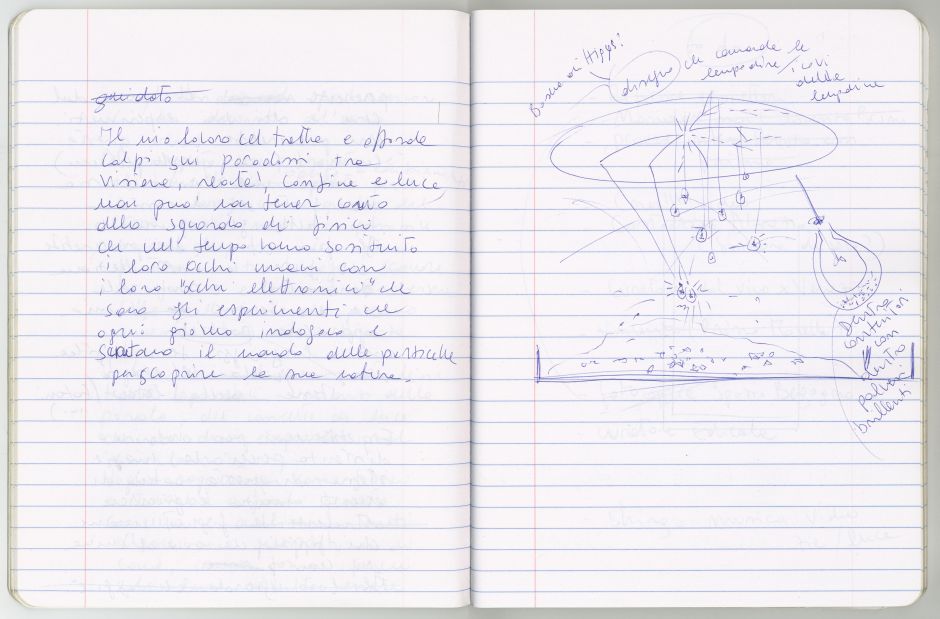 guidato
Il mio lavoro che tratta e affonda
colpi sui paradossi tra
visione, realtà, confine e luce,
non può non tener conto
dello sguardo di fisici
che nel tempo hanno sostituito
i loro occhi umani con
i loro "occhi elettronici" che
sono gli esperimenti che
ogni giorno indagano e
scrutano il mondo delle particelle
per scoprire la sua natura.
Bosone di Higgs!
disegno che comanda le
lampadine / i cavi
delle
lampadine
Dentro
contenitori
con
dentro
polveri
brillanti